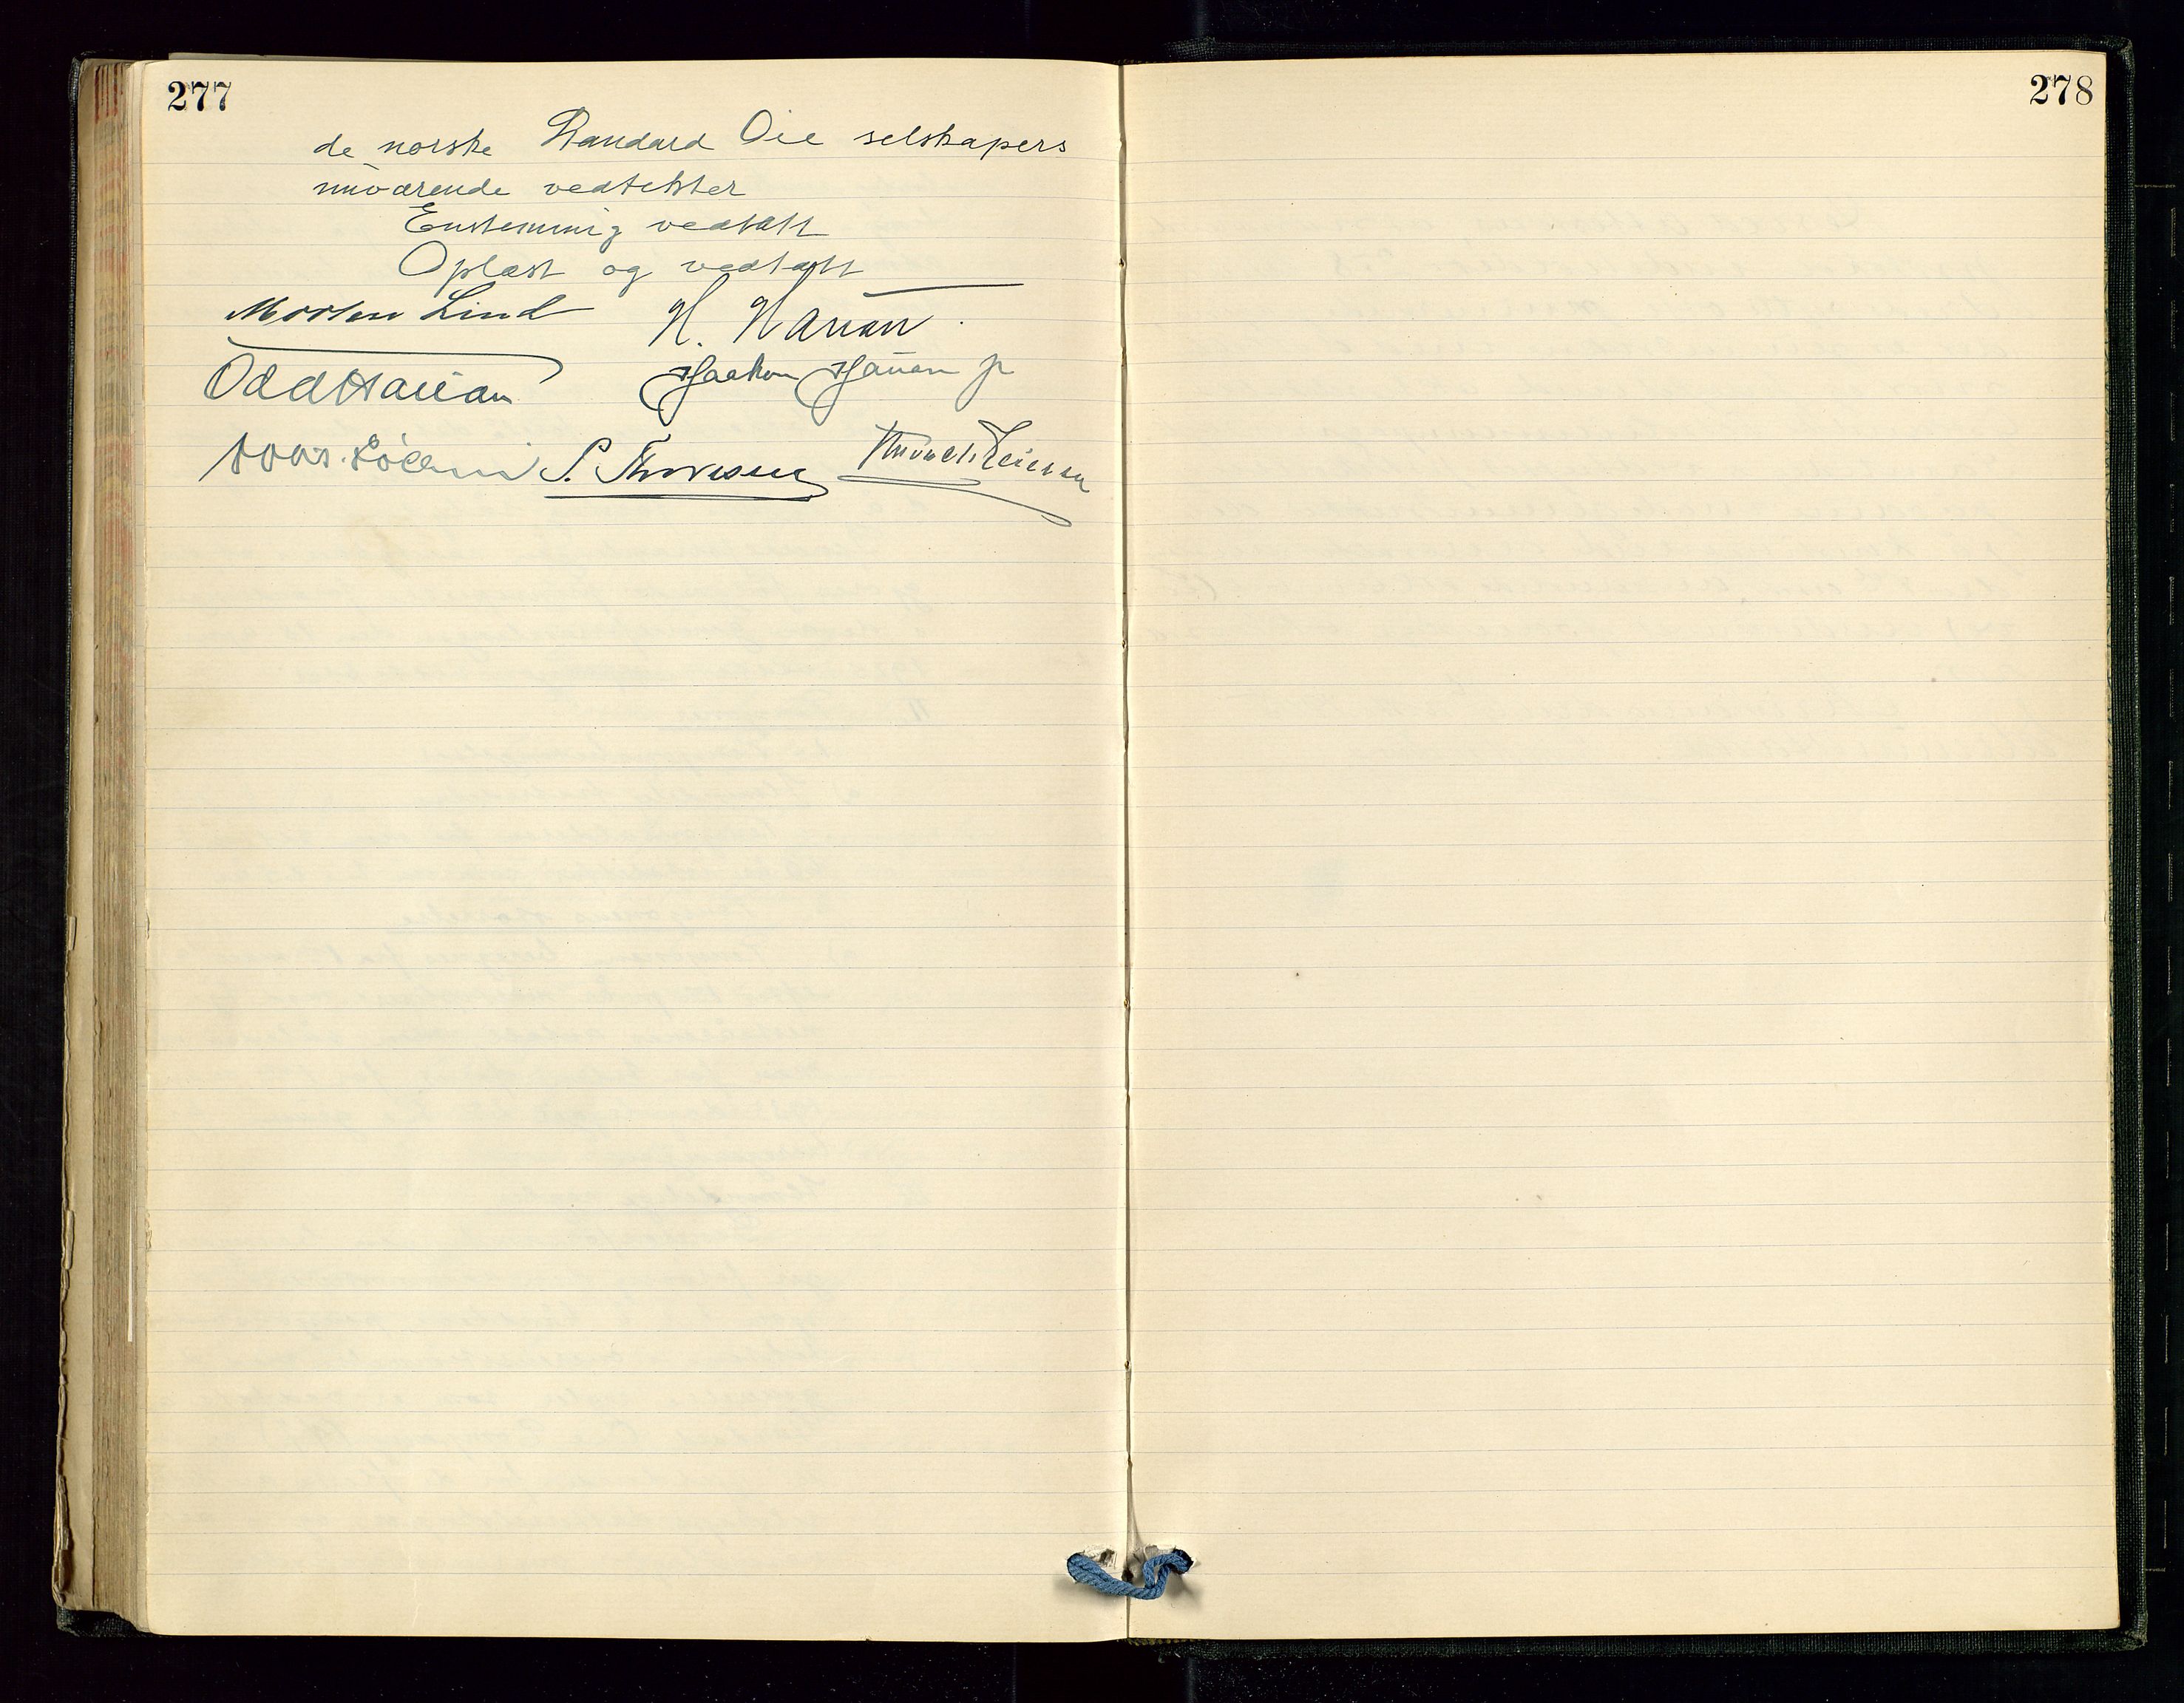 277
de norske Standard Oil selskapers
nuværende vedtekter
Enstemmig vedtatt
Oplæst og vedtatt
Morten Lind H. Hauan
Odd Hauan Haakon Hauan jr
S. Thoresen
278